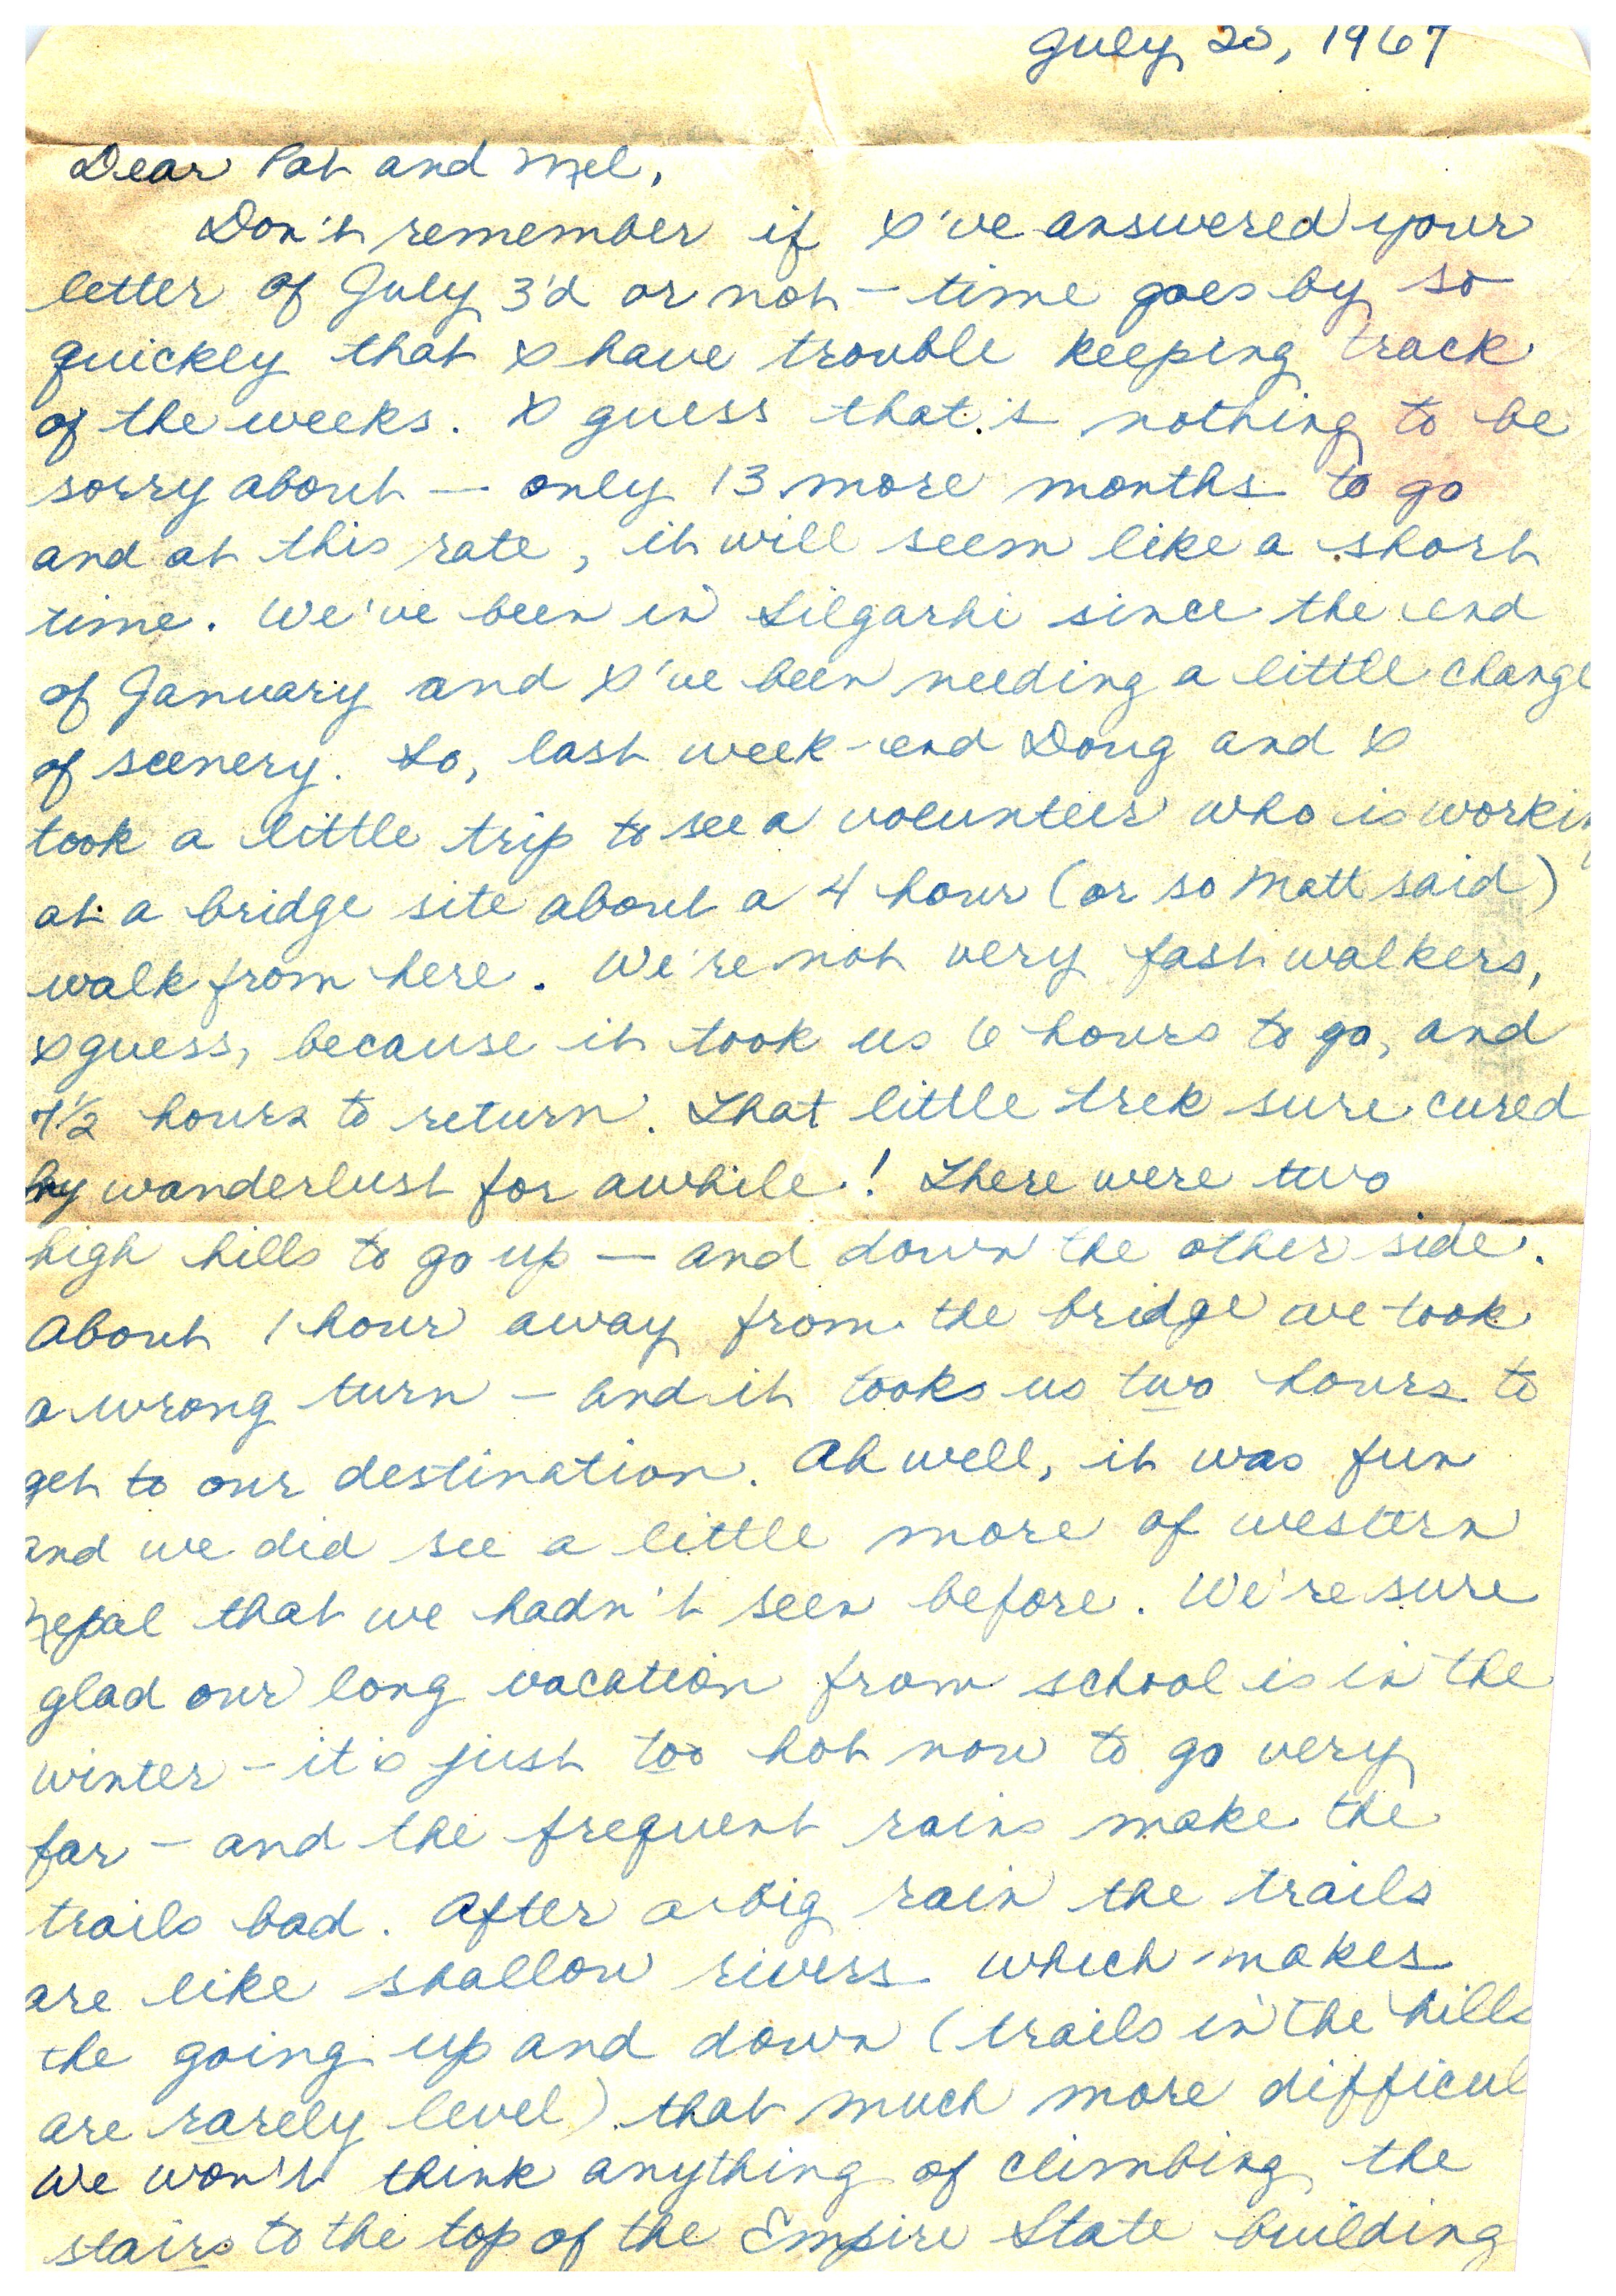 July 25, 1967
Dear Pat and Mel,
Don't remember if I've answered your
letter of July 3'd or not – time goes by so
quickly that I have trouble keeping track
of the weeks. I guess that's nothing to be
sorry about — only 13 more months to go
and at this rate, it will seem like a short
time. We've been in Silgarhi since the end
of January and I've been needing a little change
of scenery. So, last week-end Doug and I
took a little trip to see a volunteer who is workin
at a bridge site about a 4 hour (or so Matt said)
walk from here. We're not very fast walkers,
I guess, because it took us 6 hours to go, and
7½ hours to return. That little trek sure cured
my wanderlust for awhile! There were two
high hills to go up — and down the other side.
About 1 hour away from the bridge we took
a wrong turn – and it tooks us two hours to
get to our destination. Ah well, it was fun
and we did see a little more of western
Nepal that we hadn't seen before. We're sure
glad our long vacation from school is in the
winter – it's just too hot now to go very
far – and the frequent rains make the
trails bad. After a big rain the trails
are like shallow rivers which makes
the going up and down (trails in the hills
are rarely level) that much more difficul
We won't think anything of climbing the
stairs to the top of the Empire State building